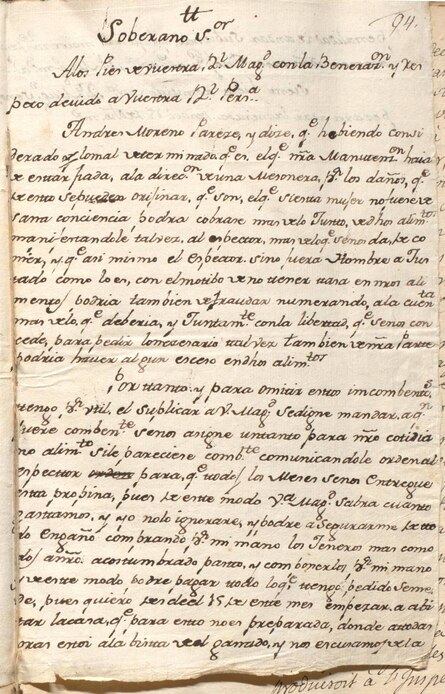 tt
94.
Soberano S.or
A los Pies de vuestra Rl Magd con la Veneraz.on y Res
peto devido a Vuestra Rl Pers.a
Andres Moreno Pareze, y dize, qe haviendo Consi
derado y lo mal determinado, qe es, el qe nra Manutenz.on haia
de estar fiada, a la direc.on de una Mesonera, pr los daños, qe
de esto se pueden orijinar, qe son, el qe si esta mujer no tuviese
sana conciencia podra cobrase mas de lo Justo, de dhos alim.tos
manifestandole tal vez, al espector, mas de lo qe se nos da, de co
mer, y qe asi mismo el espector, si no fuera Hombre a Jus
tado como lo es, con el motibo de no tener tasa en nros ali
mentos podria tambien defraudar numerando, a la cuenta
mas de lo, qe deberia, y Juntam.te con la libertad, qe se nos con
cede, para pedir lo necesario tal vez tambien de nra Parte
podria haver algun exceso en dhos alim.tos
Por tanto, y para omitir estos incombent.s
tengo pr util, el suplicar a V. Magd se digne mandar, a qn
fuere comben.te se nos asigne un tanto para nro cotidia
no alim.to si le pareciese comb.te comunicandole orden al
espector para, qe todos los Meses se nos Entregue
esta probina, pues de este modo V.a Magd sabra cuanto
gastamos, y yo no lo ignorare, y podre asegurarme de to
do Engaño comprando pr mi mano los Jeneros mas como
dos a mio acostumbrado pasto, y componerlos pr mi mano
y de este modo podre pagar todo lo qe tengo pedido se me
de, pues quiero desde el 15 de este mes empezar, a abi
tar la casa, qe para esto nos es preparada, donde a todas
oras estoi a la bista del ganado, y nos escusamos de la